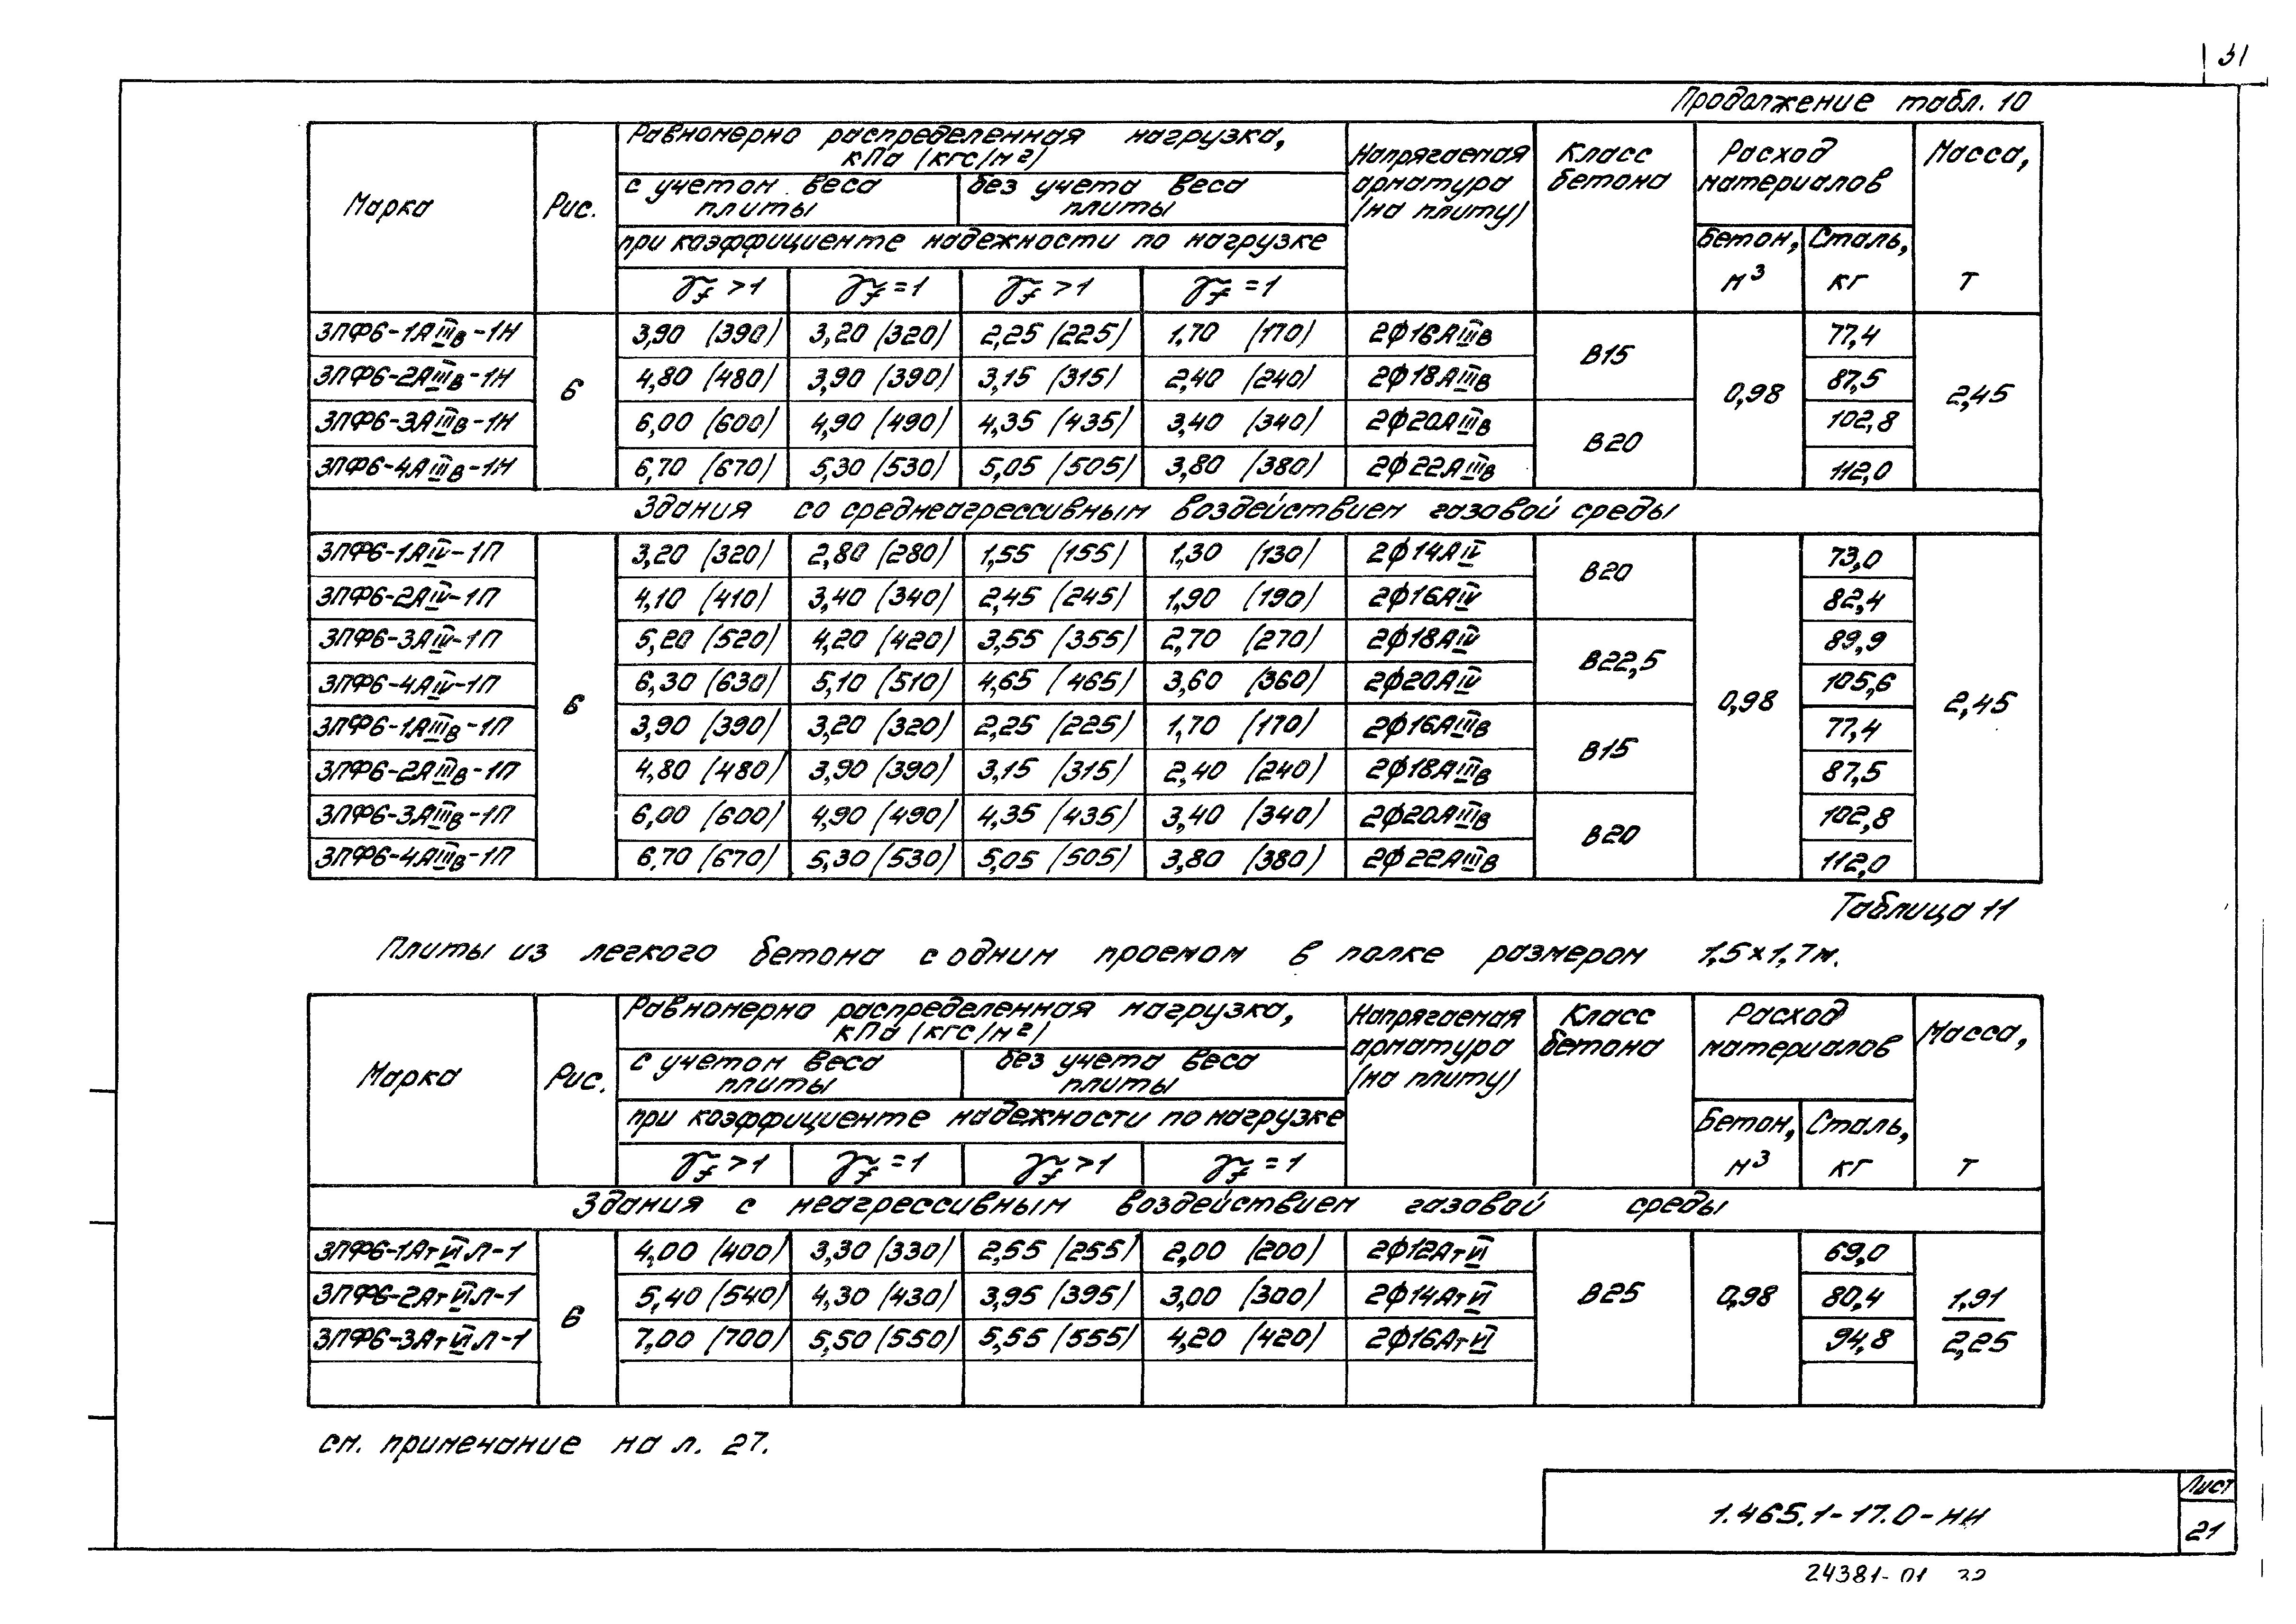 31
Продолжение табл. 10
Марка | Рис. | Равномерно распределенная нагрузка, кПа (кгс/м²) | Напрягаемая арматура (на плиту) | Класс бетона | Расход материалов | Масса, т
с учетом веса плиты | без учета веса плиты
при коэффициенте надежности по нагрузке | Бетон, м³ | Сталь, кг
γf >1 | γf =1 | γf >1 | γf =1
3ПФ6-1АIIIв-1Н | 6 | 3,90 (390) | 3,20 (320) | 2,25 (225) | 1,70 (170) | 2ф16АIIIв | В15 | 0,98 | 77,4 | 2,45
3ПФ6-2АIIIв-1Н | 4,80 (480) | 3,90 (390) | 3,15 (315) | 2,40 (240) | 2ф18АIIIв | 87,5
3ПФ6-3АIIIв-1Н | 6,00 (600) | 4,90 (490) | 4,35 (435) | 3,40 (340) | 2ф20АIIIв | В20 | 102,8
3ПФ6-4АIIIв-1Н | 6,70 (670) | 5,30 (530) | 5,05 (505) | 3,80 (380) | 2ф22АIIIв | 112,0
Здания со среднеагрессивным воздействием газовой среды
3ПФ6-1АIV-1П | 6 | 3,20 (320) | 2,80 (280) | 1,55 (155) | 1,30 (130) | 2ф14АIV | В20 | 0,98 | 73,0 | 2,45
3ПФ6-2АIV-1П | 4,10 (410) | 3,40 (340) | 2,45 (245) | 1,90 (190) | 2ф16АIV | 82,4
3ПФ6-3АIV-1П | 5,20 (520) | 4,20 (420) | 3,55 (355) | 2,70 (270) | 2ф18АIV | В22,5 | 89,9
3ПФ6-4АIV-1П | 6,30 (630) | 5,10 (510) | 4,65 (465) | 3,60 (360) | 2ф20АIV | 105,6
3ПФ6-1АIIIв-1П | 3,90 (390) | 3,20 (320) | 2,25 (225) | 1,70 (170) | 2ф16АIIIв | В15 | 77,4
3ПФ6-2АIIIв-1П | 4,80 (480) | 3,90 (390) | 3,15 (315) | 2,40 (240) | 2ф18АIIIв | 87,5
3ПФ6-3АIIIв-1П | 6,00 (600) | 4,90 (490) | 4,35 (435) | 3,40 (340) | 2ф20АIIIв | В20 | 102,8
3ПФ6-4АIIIв-1П | 6,70 (670) | 5,30 (530) | 5,05 (505) | 3,80 (380) | 2ф22АIIIв | 112,0
Таблица 11
Плиты из легкого бетона с одним проемом в полке размером 1,5×1,7м.
Марка | Рис. | Равномерно распределенная нагрузка, кПа (кгс/м²) | Напрягаемая арматура (на плиту) | Класс бетона | Расход материалов | Масса, т
с учетом веса плиты | без учета веса плиты
при коэффициенте надежности по нагрузке | Бетон, м³ | Сталь, кг
γf >1 | γf =1 | γf >1 | γf =1
Здания с неагрессивным воздействием газовой среды
3ПФ6-1АтVIЛ-1 | 6 | 4,00 (400) | 3,30 (330) | 2,55 (255) | 2,00 (200) | 2ф12АтVI | В25 | 0,98 | 69,0 | 1,91
3ПФ6-2АтVIЛ-1 | 5,40 (540) | 4,30 (430) | 3,95 (395) | 3,00 (300) | 2ф14АтVI | 80,4 | 2,25
3ПФ6-3АтVIЛ-1 | 7,00 (700) | 5,50 (550) | 5,55 (555) | 4,20 (420) | 2ф16АтVI | 94,8
см. примечание на л. 27.
1.465.1-17.0-НИ
Лист
21
24381-01 32